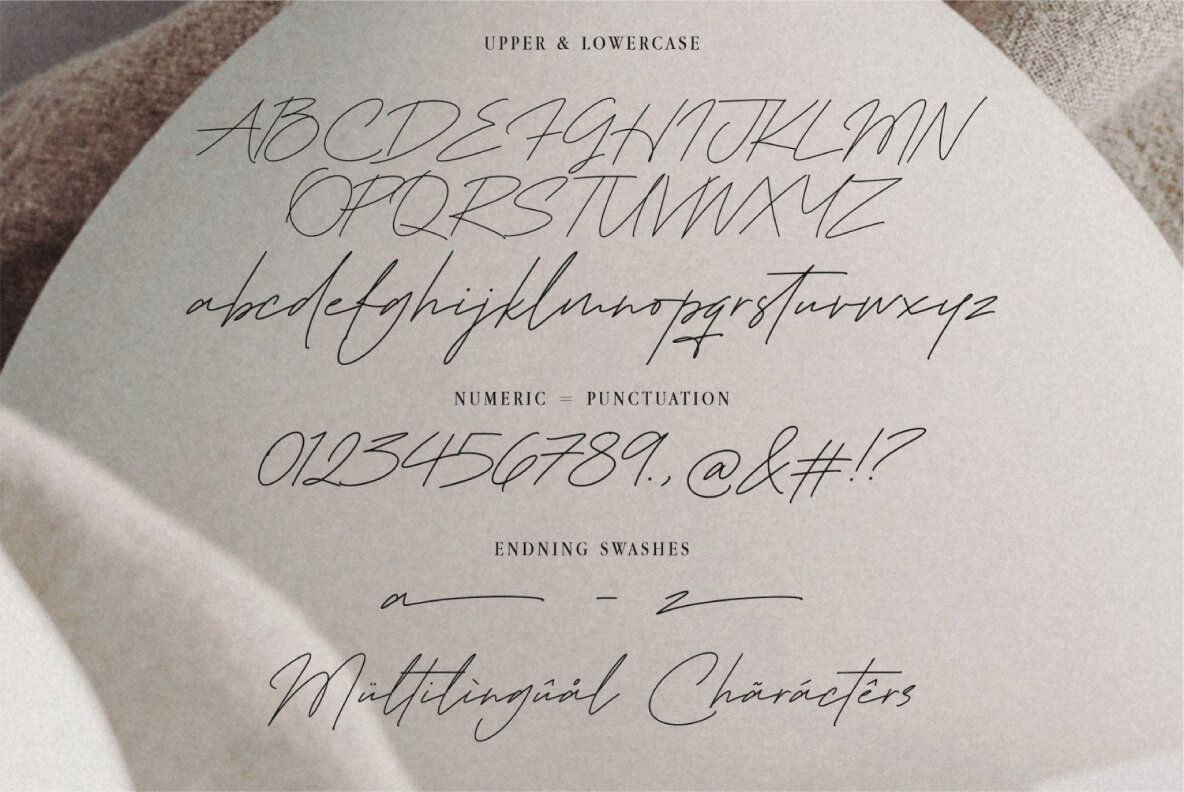 UPPER & LOWERCASE
ABCDEFGHIJKLMN
OPQRSTUVWXYZ
abcdefghijklmnopqrstuvwxyz
NUMERIC = PUNCTUATION
0123456789.,@&#!?
ENDNING SWASHES
a - z
Mültilìngûål Chãráctêrs